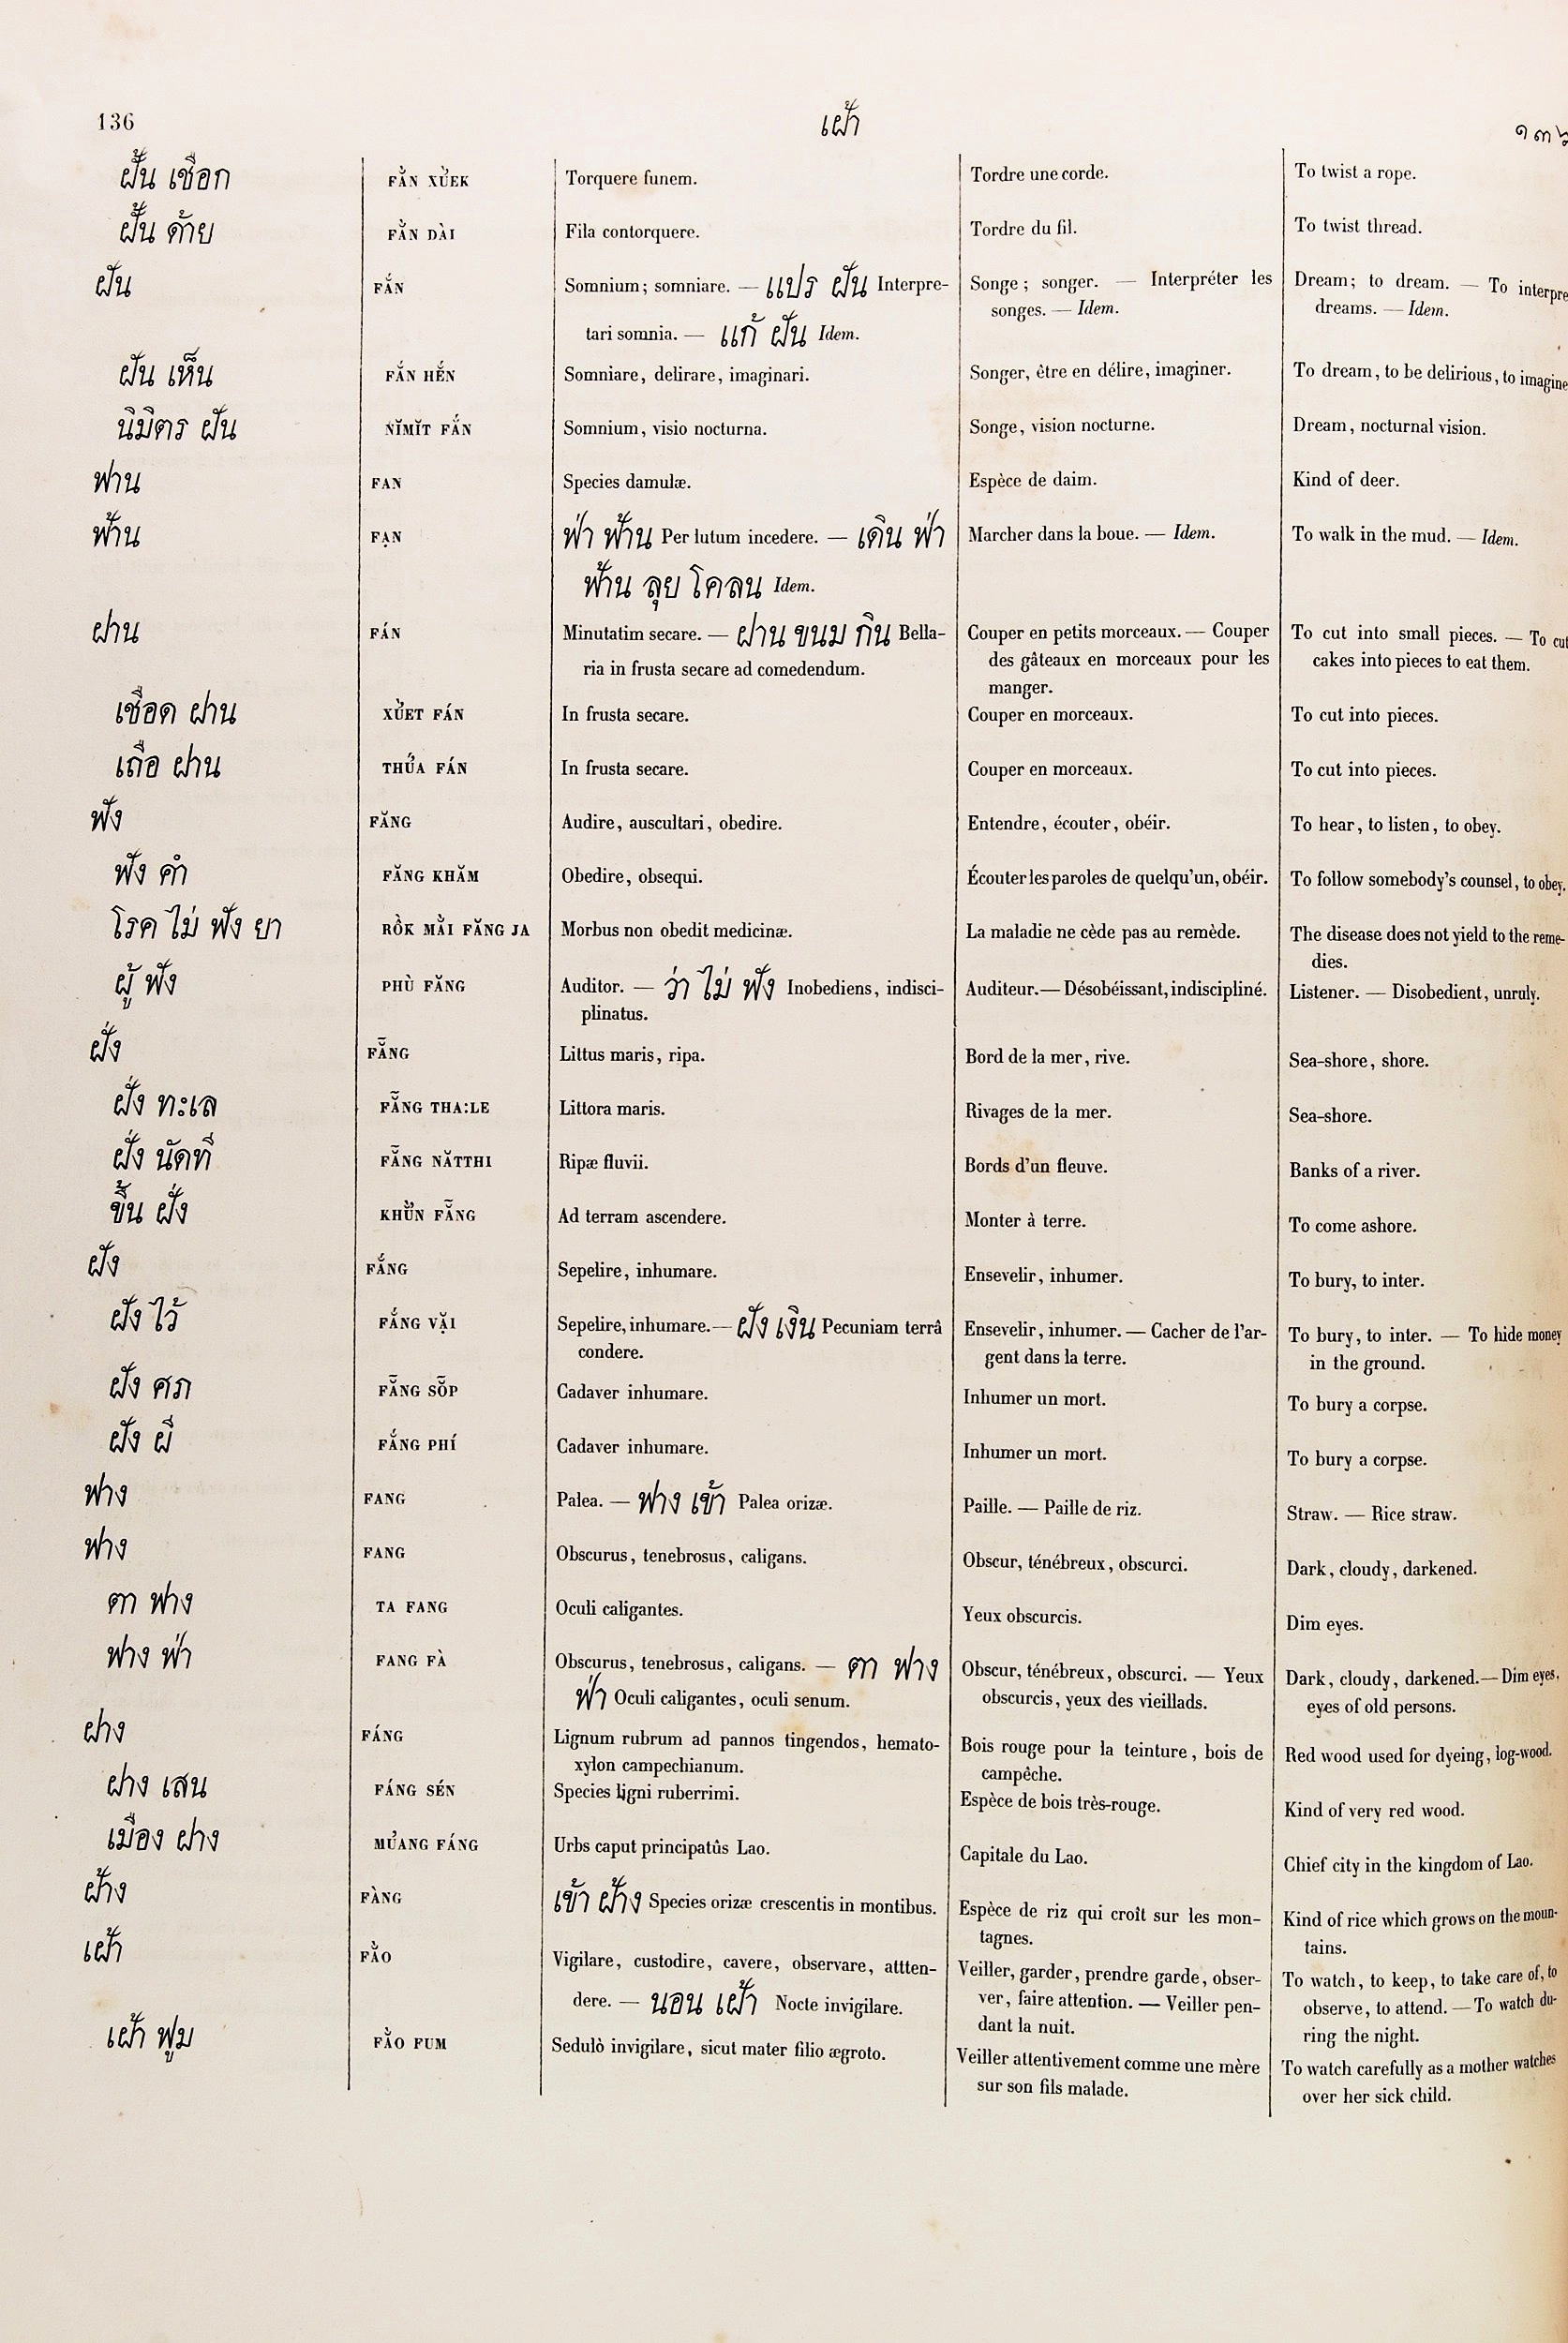 136 เฝ้า ๑๓๖
ฝั้น เชือก FẲN XỬEK Torquere funem. Tordre une corde. To twist a rope.
ฝั้น ด้าย FẲN DÀI Fila contorquere. Tordre du fil. To twist thread.
ฝัน FẮN Somnium; somniare. — แปร ฝัน Interpre- Songe; songer. — Interpréter les Dream; to dream. — To interpre
tari somnia. — แก้ ฝัน Idem. songes. — Idem. dreams. — Idem.
ฝัน เห็น FẮN HĔ́N Somniare, delirare, imaginari. Songer, être en délire, imaginer. To dream, to be delirious, to imagine
นิมิตร ฝัน NĬMĬT FẮN Somnium, visio nocturna. Songe, vision nocturne. Dream, nocturnal vision.
ฟาน FAN Species damulæ. Espèce de daim. Kind of deer.
ฟ้าน FẠN ฟ่า ฟ้าน Per lutum incedere. — เดิน ฟ่า Marcher dans la boue. — Idem. To walk in the mud. — Idem.
ฟ้าน ลุย โคลน Idem.
ฝาน FÁN Minutatim secare. — ฝาน ขนม กิน Bella- Couper en petits morceaux. — Couper To cut into small pieces. — To cut
ria in frusta secare ad comedendum. des gâteaux en morceaux pour les cakes into pieces to eat them.
manger.
เชือด ฝาน XỬET FÁN In frusta secare. Couper en morceaux. To cut into pieces.
เถือ ฝาน THỨA FÁN In frusta secare. Couper en morceaux. To cut into pieces.
ฟัง FĂNG Audire, auscultari, obedire. Entendre, écouter, obéir. To hear, to listen, to obey.
ฟัง คำ FĂNG KHĂM Obedire, obsequi. Écouter les paroles de quelqu'un, obéir. To follow somebody's counsel, to obey.
โรค ไม่ ฟัง ยา RŎ̀K MẰI FĂNG JA Morbus non obedit medicinæ. La maladie ne cède pas au remède. The disease does not yield to the reme-
dies.
ผู้ ฟัง PHÙ FĂNG Auditor. — ว่า ไม่ ฟัง Inobediens, indisci- Auditeur. — Désobéissant, indiscipliné. Listener. — Disobedient, unruly.
plinatus.
ฝั่ง FẴNG Littus maris, ripa. Bord de la mer, rive. Sea-shore, shore.
ฝั่ง ทะเล FẴNG THA:LE Littora maris. Rivages de la mer. Sea-shore.
ฝั่ง นัดที FẴNG NĂTTHI Ripæ fluvii. Bords d'un fleuve. Banks of a river.
ขึ้น ฝั่ง KHỬ̀N FẴNG Ad terram ascendere. Monter à terre. To come ashore.
ฝัง FẮNG Sepelire, inhumare. Ensevelir, inhumer. To bury, to inter.
ฝัง ไว้ FẮNG VẶI Sepelire, inhumare. — ฝัง เงิน Pecuniam terrâ Ensevelir, inhumer. — Cacher de l'ar- To bury, to inter. — To hide money
condere. gent dans la terre. in the ground.
ฝัง ศภ FẴNG SŎ̃P Cadaver inhumare. Inhumer un mort. To bury a corpse.
ฝัง ผี FẮNG PHÍ Cadaver inhumare. Inhumer un mort. To bury a corpse.
ฟาง FANG Palea. — ฟาง เข้า Palea orizæ. Paille. — Paille de riz. Straw. — Rice straw.
ฟาง FANG Obscurus, tenebrosus, caligans. Obscur, ténébreux, obscurci. Dark, cloudy, darkened.
ตา ฟาง TA FANG Oculi caligantes. Yeux obscurcis. Dim eyes.
ฟาง ฟ่า FANG FÀ Obscurus, tenebrosus, caligans. — ตา ฟาง Obscur, ténébreux, obscurci. — Yeux Dark, cloudy, darkened. — Dim eyes,
ฟ่า Oculi caligantes, oculi senum. obscurcis, yeux des vieillads. eyes of old persons.
ฝาง FÁNG Lignum rubrum ad pannos tingendos, hemato- Bois rouge pour la teinture, bois de Red wood used for dyeing, log-wood.
xylon campechianum. campêche.
ฝาง เสน FÁNG SÉN Species ligni ruberrimi. Espèce de bois très-rouge. Kind of very red wood.
เมือง ฝาง MỦANG FÁNG Urbs caput principatûs Lao. Capitale du Lao. Chief city in the kingdom of Lao.
ฝ้าง FÀNG เข้า ฝ้าง Species orizæ crescentis in montibus. Espèce de riz qui croît sur les mon- Kind of rice which grows on the moun-
tagnes. tains.
เฝ้า FẰO Vigilare, custodire, cavere, observare, attten- Veiller, garder, prendre garde, obser- To watch, to keep, to take care of, to
dere. — นอน เฝ้า Nocte invigilare. ver, faire attention. — Veiller pen- observe, to attend. — To watch du-
dant la nuit. ring the night.
เฝ้า ฟูม FẰO FUM Sedulò invigilare, sicut mater filio ægroto. Veiller attentivement comme une mère To watch carefully as a mother watches
sur son fils malade. over her sick child.